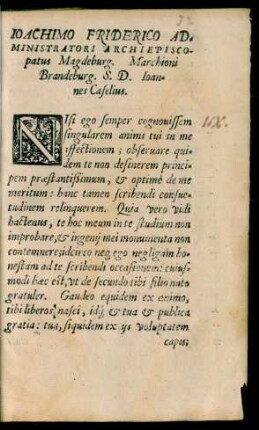 IOACHIMO FRIDERICO AD-
MINISTRATORI ARCHIEPISCO-
patus Magdeburg. Marchioni
Brandeburg. S. D. Ioan-
nes Caselius.
NIsi ego semper cognouissem
singularem animi tui in me
affectionem; obseruare qui-
dem te non desinerem princi-
pem præstantissimum, & optimè de me
meritum: hanc tamen scribendi consue-
tudinem relinquerem. Quia vero vidi
hactenus, te hoc meum in te studium non
improbare, & ingenij mei monumenta non
contemnere; idcirco neq; ego negligam ho-
nestam ad te scribendi occasionem: cuius-
modi hæc est, vt de secundo tibi filio nato
gratuler. Gaudeo equidem ex animo,
tibi liberos nasci, idq; & tua & publica
gratia: tua, siquidem ex ijs voluptatem
capis;